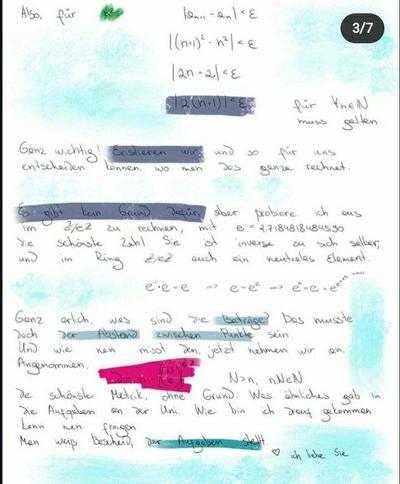 Also, für |aₙ₊₁ - aₙ| < ε
3/7
|(n+1)² - n²| < ε
|2n + 2| < ε
|2(n+1)| < ε für ∀n∈N
muss gelten.
Ganz wichtig! Existieren wir und so für uns
entscheiden können, wo man das ganze rechnet.
Es gibt kein Grund dafür, aber probiere ich aus
im Z/eZ zu rechnen, mit e = 2,7184818484590
die schönste Zahl. Sie ist inverse zu sich selber,
und im Ring Z/eZ auch ein neutrales Element.
Ganz erlich, was sind die Beträge? Das musste
doch der Abstand zwischen Punkte sein.
Und wie man misst den, jetzt nehmen wir an,
Angenommen, N>n, n∈N
die schönste Metrik, ohne Grund. Was ähnliches gab in
die Aufgaben an der Uni. Wie bin ich drauf gekommen
kann man fragen
Man weiß Bescheid, der Aufgaben stellt.
♡ ich liebe Sie